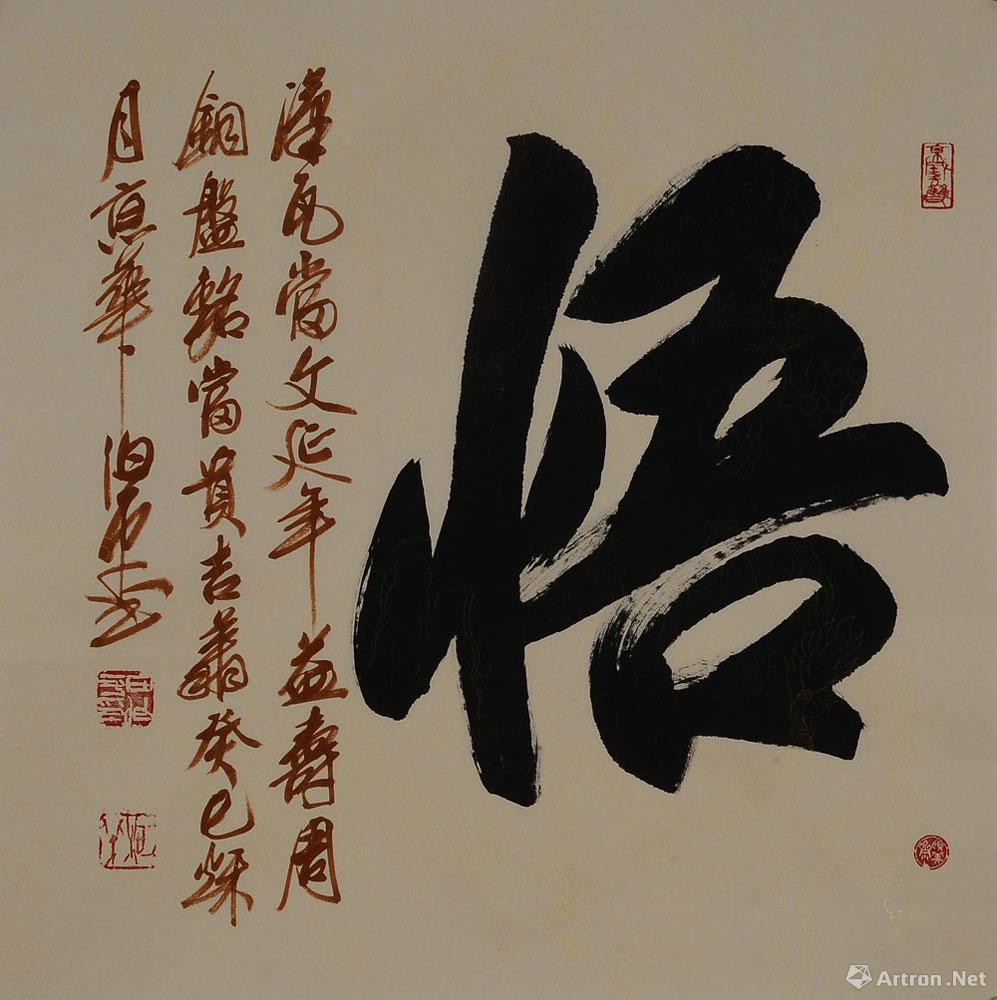 悟
漢瓦當文延年益壽周
銅盤銘當貴吉羊癸巳秌
月京華
Artron.Net